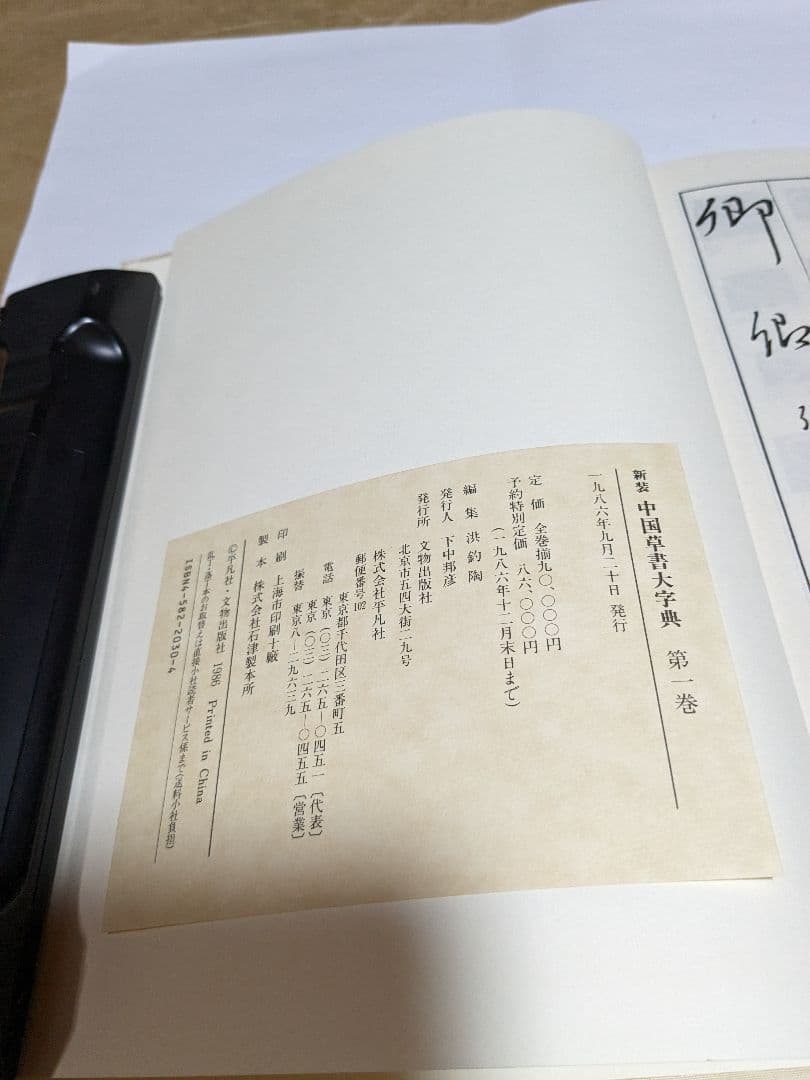 新装 中国草書大字典 第一巻
一九八六年九月二十日 発行
定 価 全巻揃九〇、〇〇〇円
予約特別定価 八六、〇〇〇円
(一九八六年十二月末日まで)
編 集 洪鈞陶
発行人 下中邦彦
発行所 文物出版社
北京市五四大街二九号
株式会社平凡社
郵便番号102
東京都千代田区三番町五
電話 東京(〇三)二六五―〇四五一〔代表〕
東京(〇三)二六五―〇四五五〔営業〕
振替 東京八―二九六三九
印 刷 上海市印刷十厰
製 本 株式会社石津製本所
©平凡社・文物出版社 1986 Printed in China
乱丁・落丁本のお取替えは直接小社読者サービス係まで(送料小社負担)
ISBN4-582-2030-4
卿
卿